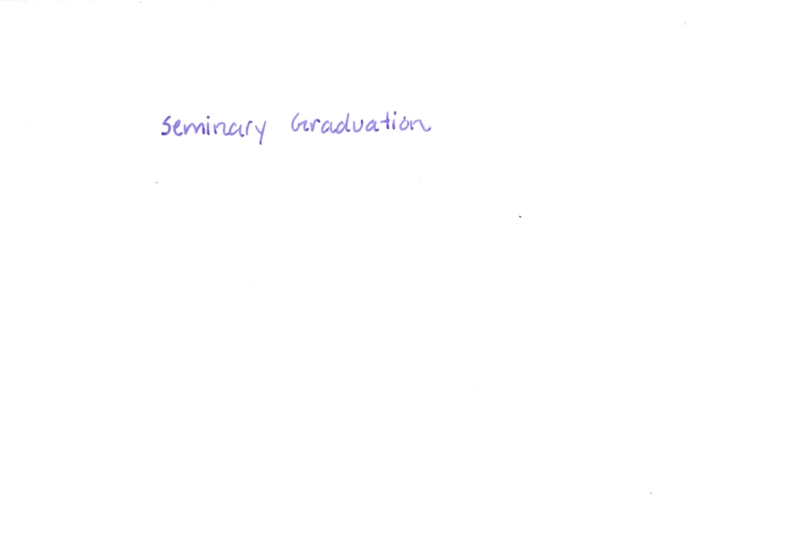 Seminary Graduation